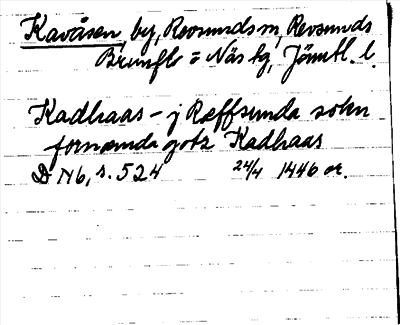 Kavåsen, by, Revsunds sn, Revsunds
Brunflo o Näs tg, Jämtl. l.
Kadhaas – j Ræffsunda sokn
fornæmda gotz Kadhaas
D N 6, s. 524 24/4 1446 or.